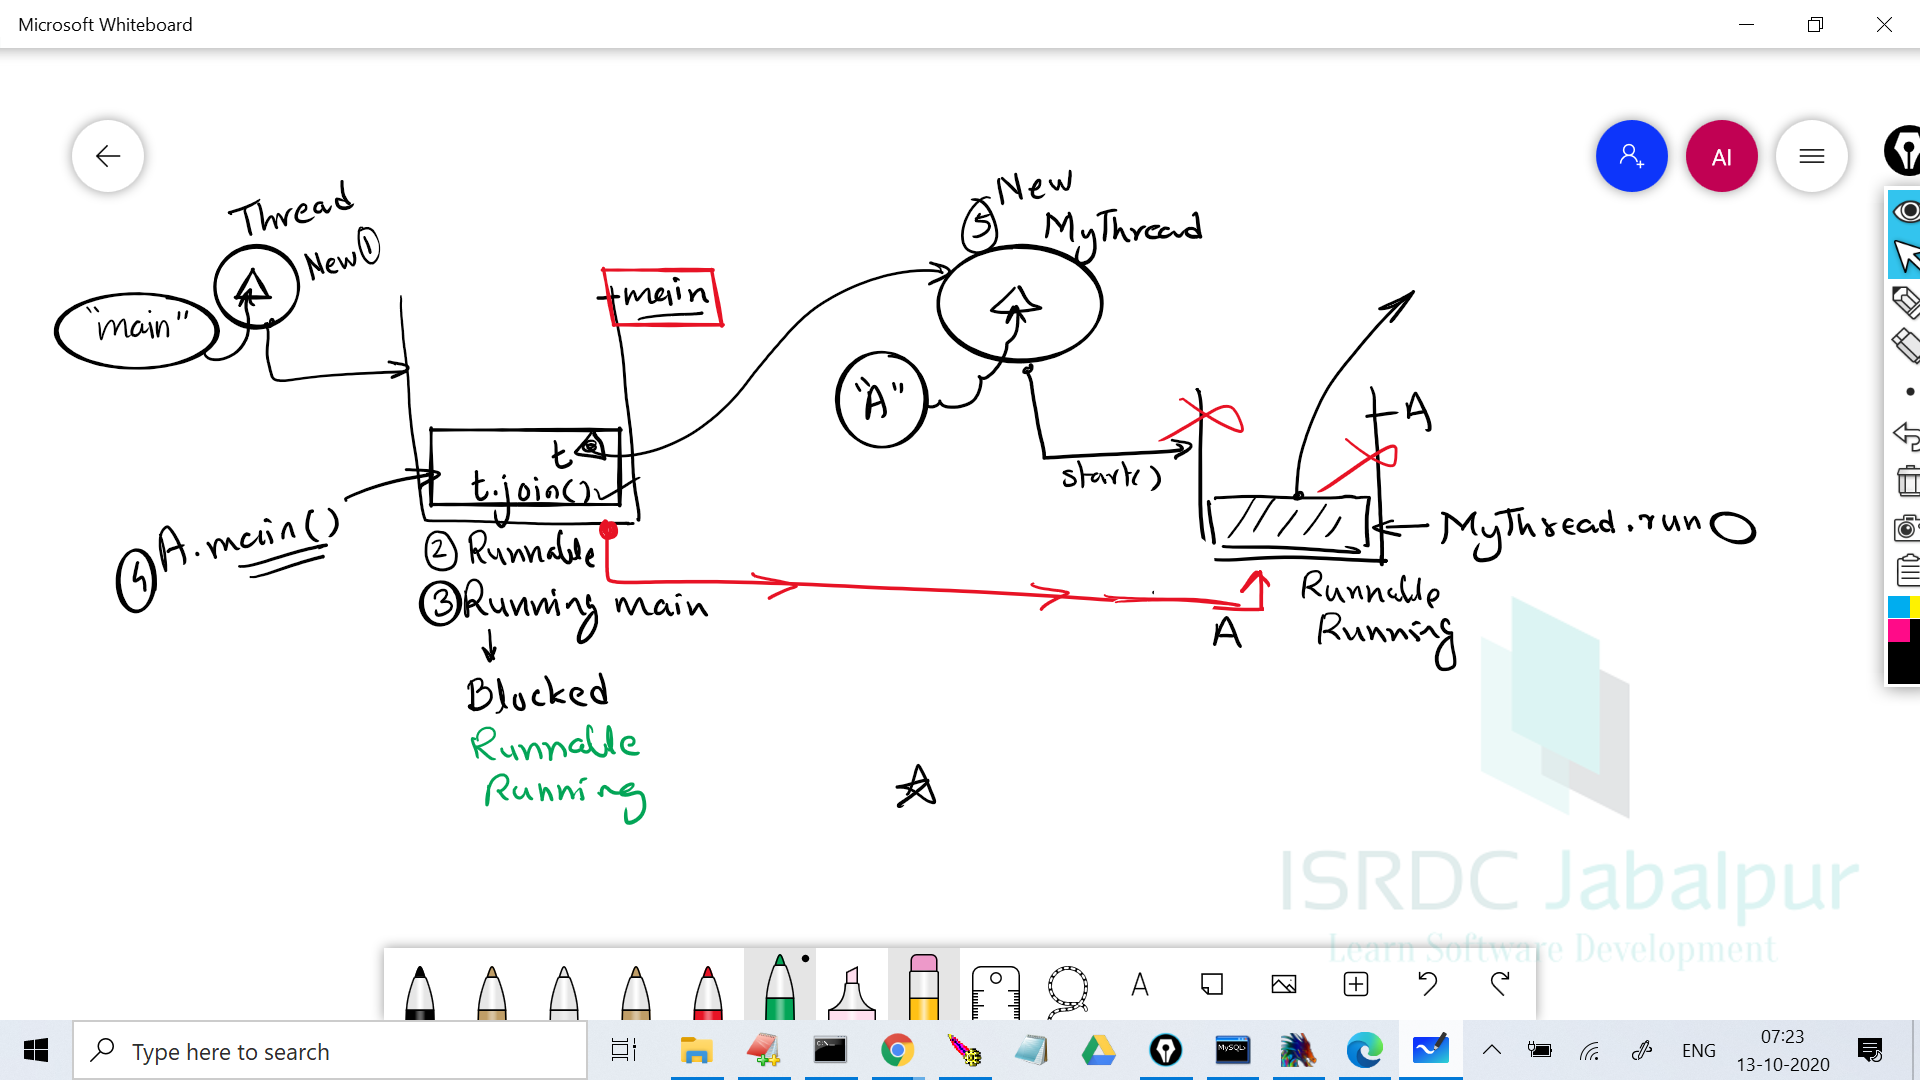 Microsoft Whiteboard
AI
Thread
New ①
"main"
main
t
t.join()
④ A.main()
② Runnable
③ Running main
Blocked
Runnable
Running
⑤ New
MyThread
"A"
start()
A
MyThread.run()
Runnable
Running
A
ISRDC Jabalpur
Learn Software Development
A
Type here to search
C:\
MySQL
ENG
07:23
13-10-2020